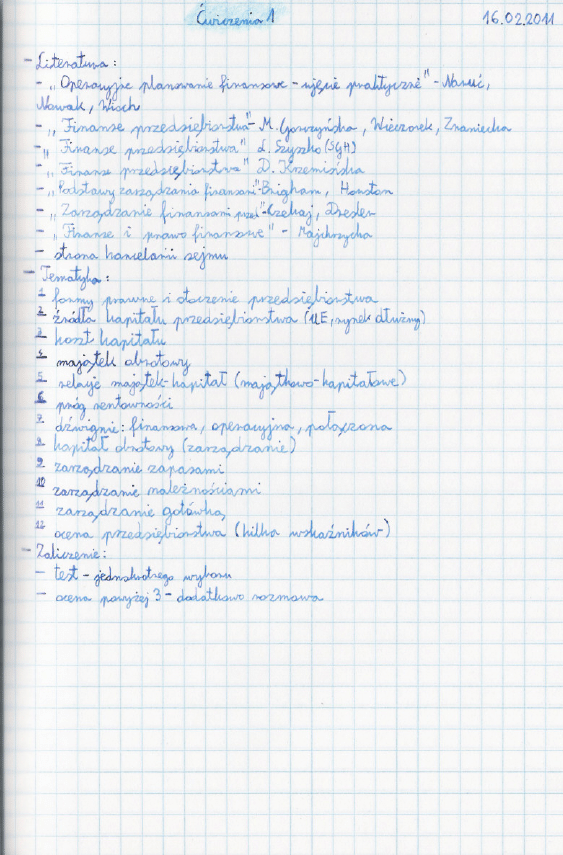 Ćwiczenia 1 16.02.2011
- Literatura:
- „Operacyjne planowanie finansowe - ujęcie praktyczne" - Naruć,
Nowak, Wioch
- „Finanse przedsiębiorstwa" - M. Gorczyńska, Wieczorek, Znaniecka
- „Finanse przedsiębiorstwa" L. Szyszko (SGH)
- „Finanse przedsiębiorstwa" D. Krzemińska
- „Podstawy zarządzania finansami" - Brigham, Houston
- „Zarządzanie finansami przed" - Czekaj, Dresler
- „Finanse i prawo finansowe" - Majchrzycka
- strona kancelarii sejmu
- Tematyka:
1 formy prawne i otoczenie przedsiębiorstwa
2 źródła kapitału przedsiębiorstwa (UE, rynek dłużny)
3 koszt kapitału
4 majątek obrotowy
5 relacje majątek-kapitał (majątkowo-kapitałowe)
6 próg rentowności
7 dźwignie: finansowa, operacyjna, połączona
8 kapitał obrotowy (zarządzanie)
9 zarządzanie zapasami
10 zarządzanie należnościami
11 zarządzanie gotówką
12 ocena przedsiębiorstwa (kilka wskaźników)
- Zaliczenie:
- test - jednokrotnego wyboru
- ocena powyżej 3 - dodatkowo rozmowa